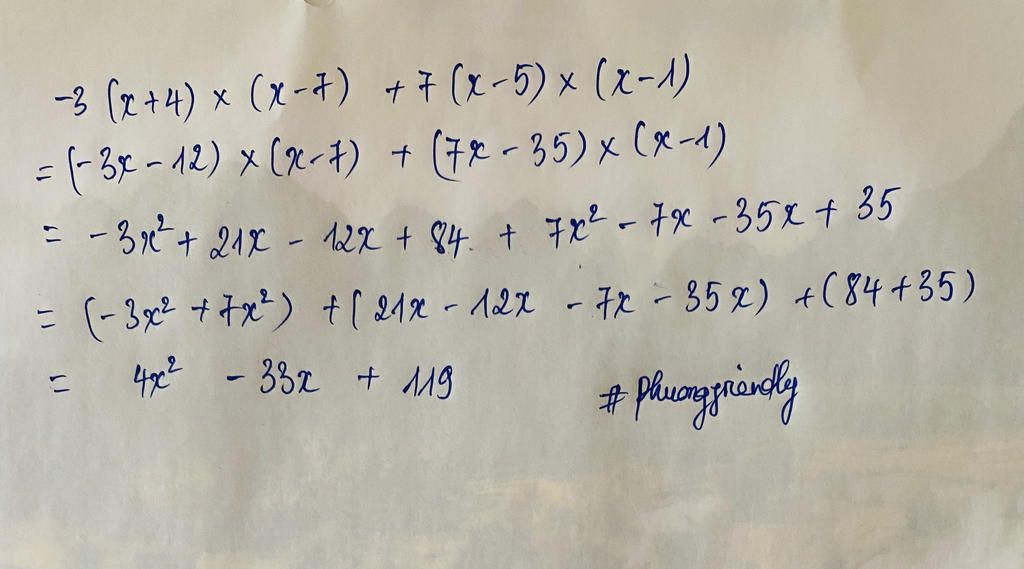 -3 (x+4) × (x-7) +7 (x-5) × (x-1)
= (-3x - 12) × (x-7) + (7x - 35) × (x-1)
= -3x² + 21x - 12x + 84 + 7x² - 7x - 35x + 35
= (-3x² + 7x²) + (21x - 12x - 7x - 35x) + (84+35)
= 4x² - 33x + 119
# phuongfriendly